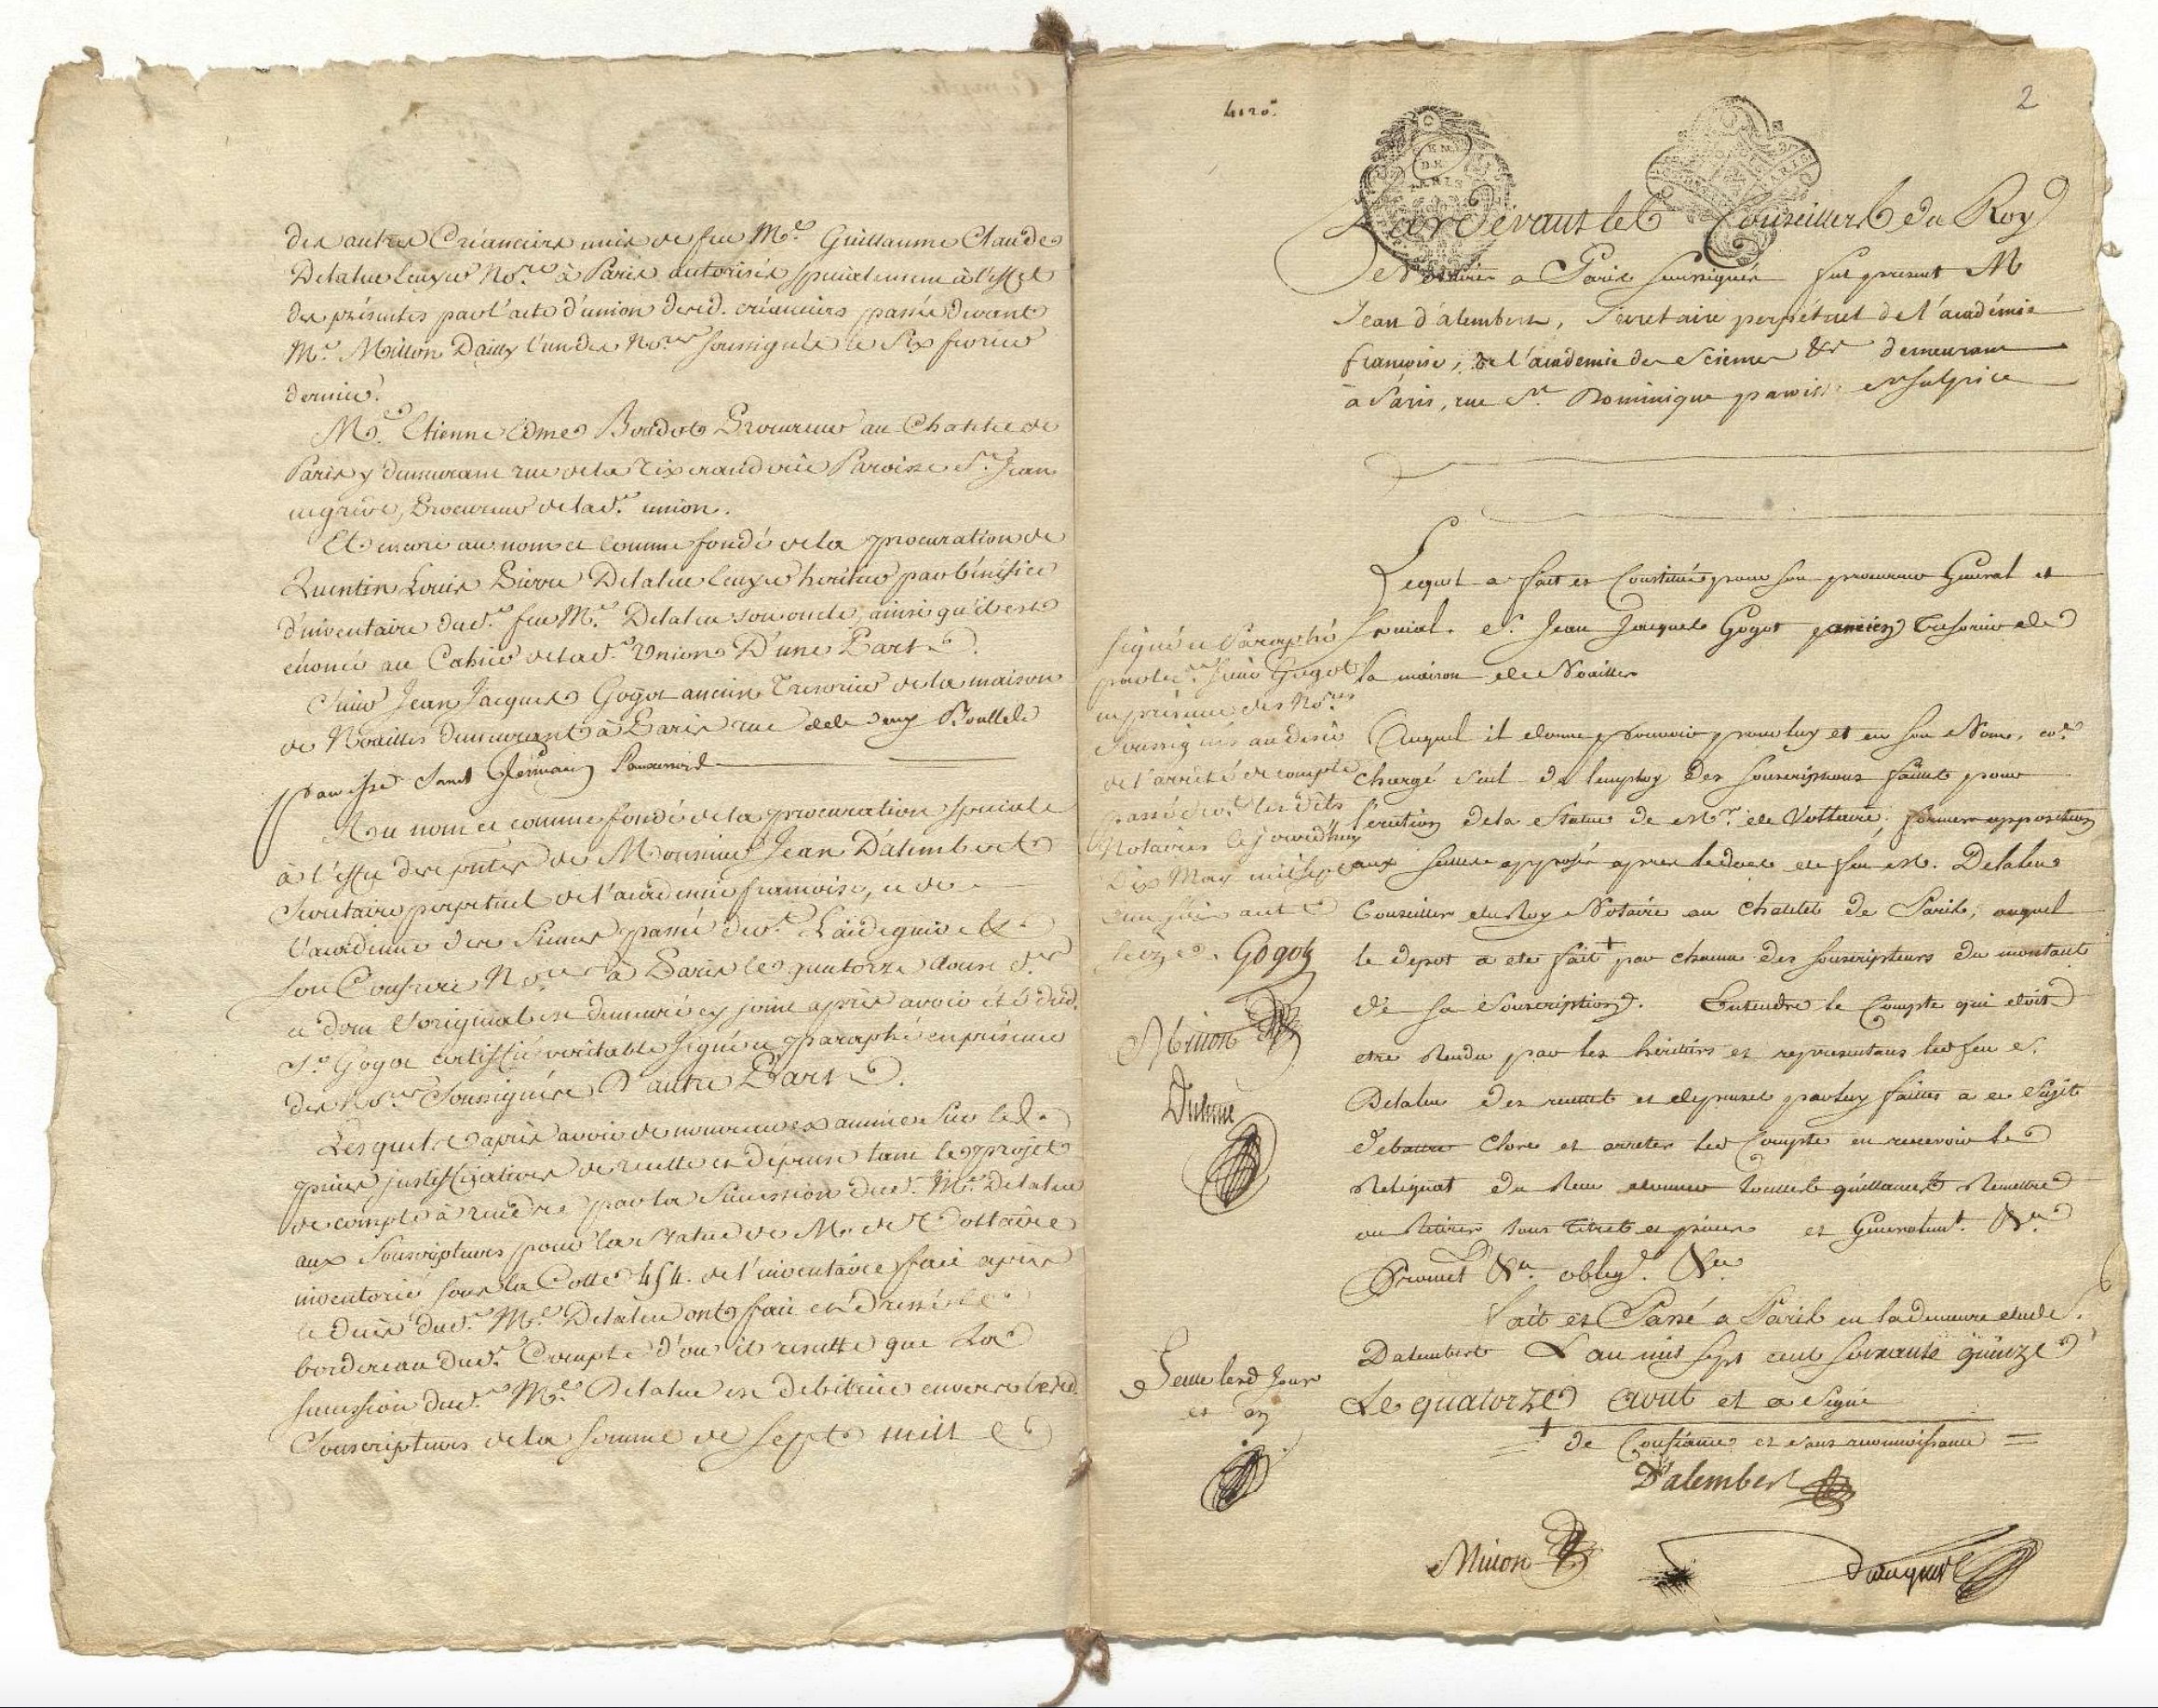 des autres Créanciers unis de feu Me. Guillaume Claude
Delaleu Ecuyer Nore. à Paris autorisés specialement à l'effet
des présentes par l'acte d'union desd. créanciers passé devant
Me. Mitton Dailly l'un des Nores soussignés le Six fevrier
dernier.
Me. Etienne Edme Boudot Procureur au Chatelet de
Paris y demeurant rue de la Tixeranderie Paroisse St. Jean
en grève, Procureur de lade. union.
Et encore au nom et comme fondé de la procuration de
Quentin Louis Pierre Delaleu Ecuyer heritier par bénéfice
d'inventaire dud. feu Me. Delaleu son oncle, ainsi qu'il est
énoncé au Cahier de lad. Union D'une Part.
Sieur Jean Jacques Gogot ancien Tresorier de la maison
de Noailles demeurant à Paris rue des deux Boulles
Paroisse Saint Germain Lauxerrois
Au nom et comme fondé de la procuration speciale
à l'effet des pntes de Monsieur Jean D'alembert
Secretaire perpetuel de l'académie françoise, et de
l'académie des Sciences passé devt. Laideguive &
son Confrere Nores à Paris le quatorze aoust der
et dont l'original est demeuré cy joint après avoir été dud.
Sr. Gogot certiffié véritable signé et paraphé en présence
des Nores. Soussignés D'autre Part.
Lesquels après avoir de nouveau examiné sur les
pieces justifficatives de recette et dépense tant le projet
de compte à rendre par la Succession dud. Me. Delaleu
aux Souscripteurs pour la Statue de M. de Voltaire
inventorié sous la Cotte 454. de l'inventaire fait après
le decès dud. Me. Delaleu ont fait et dressé le
bordereau dud. Compte d'ou il resulte que La
succession dud. Me. Delaleu est debitrice envers lesd.
Souscripteurs de la somme de sept mill
4120.
2
Pardevant les Conseillers du Roy
Notaires a Paris soussignés fut present M
Jean d'alembert, Secretaire perpétuel de l'académie
françoise, de l'academie des Sciences &c demeurant
à Paris, rue St. Dominique paroisse St sulpice
Lequel a fait et Constitué pour son procureur General et
Special. Sr. Jean Jacques Gogot ancien Tresorier de
la maison de Noailles
Auquel il donne pouvoir pour luy et en son Nom, co.e
chargé seul de l'employ des souscriptions faites pour
l'erection de la Statue de Mr. de Voltaire, former opposition
aux scellés apposés apres le deces de feu M. Delaleu
Conseiller du Roy Notaire au Chatelet de Paris, auquel
le depot a eté fait + par chacun des souscripteurs du montant
de sa Souscription. Entendre le Compte qui doit
etre Rendu par les héritiers et representans led feu S.
Delaleu des recettes et depenses par luy faittes a ce Sujet
debattre clore et arreter led Compte en recevoir le
Reliquat du Recu donner touttes quittances Remettre
ou Retirer tous titres et pieces et Generalemt. &c
Promet &c. oblig. &c
Fait et Passé a Paris en la demeure dud S.
Dalembert L an mil sept cent soixante quinze
Le quatorze Aout et a Signé
+ de Confiance et sans reconnoissance =
D'alembert
Mitton
Signé et Paraphé
par led. Sieur Gogot
en présence des Nores
Soussignés au desir
de l'arrêté de compte
passé devt. les dits
Notaires le jourd'huy
Dix May mil sept
cent soixante
seize. Gogot
Mitton
Dulme
Scellé lesd Jour
et an